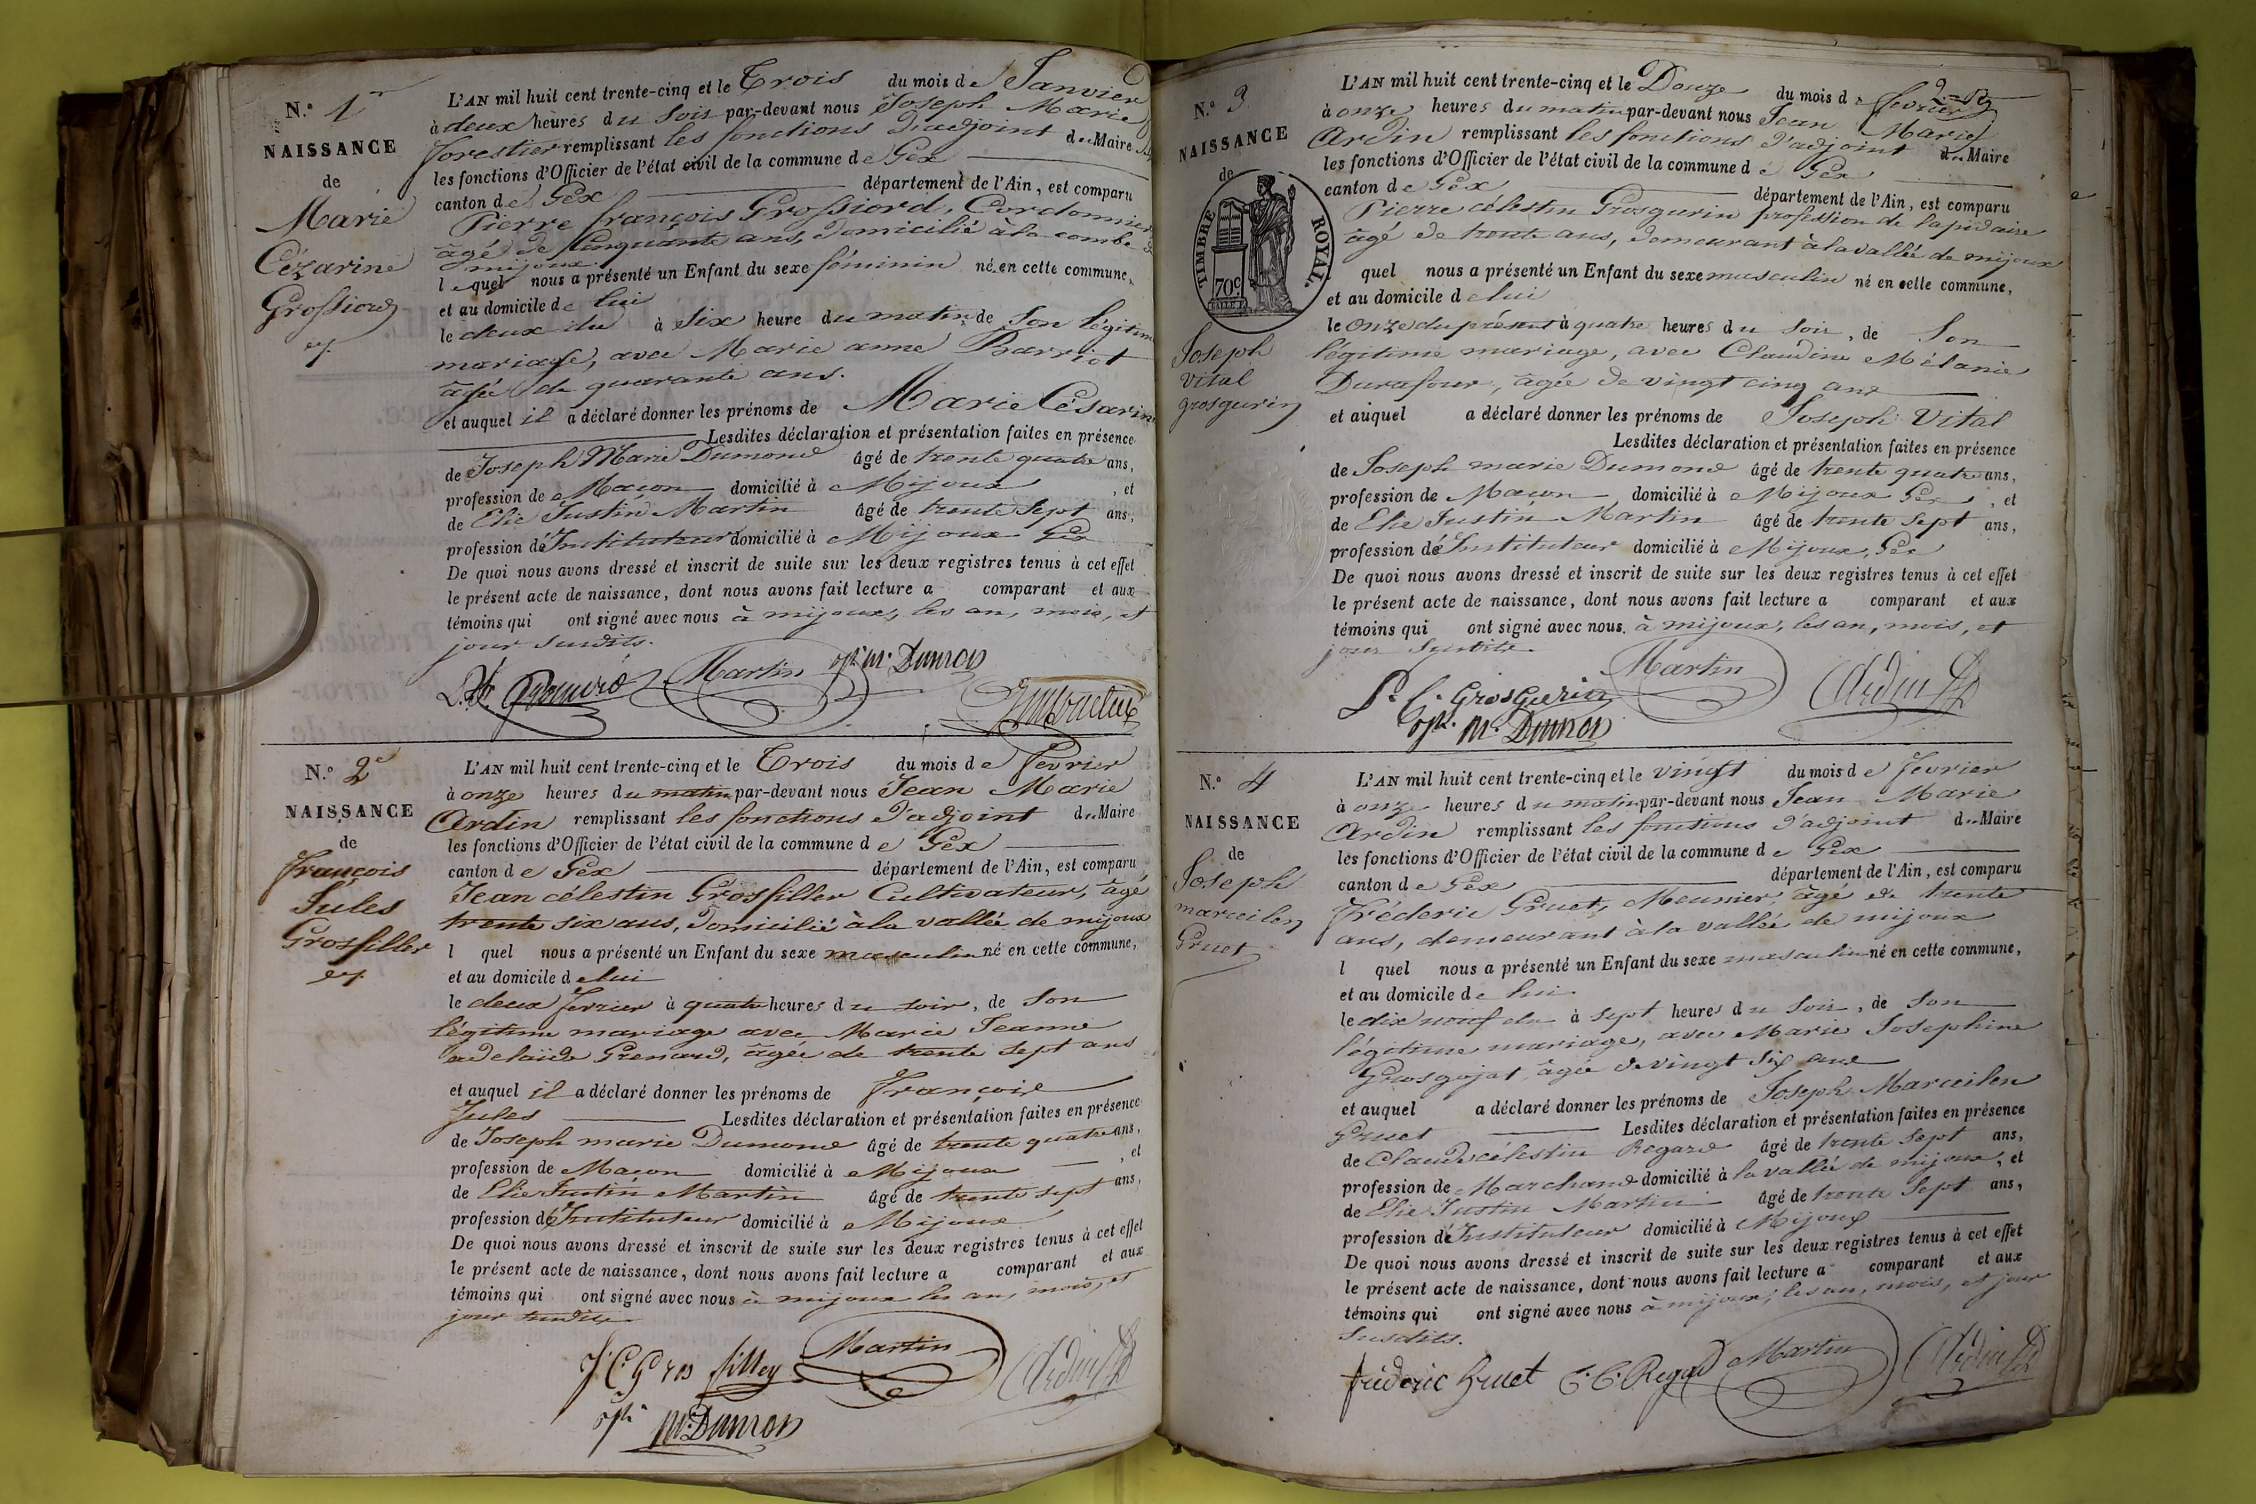 N.º 1er
NAISSANCE
de
Marie
Cézarine
Grossiord
L'AN mil huit cent trente-cinq et le Trois du mois de Janvier
à deux heures du soir par-devant nous Joseph Marie
forestier remplissant les fonctions d'adjoint du Maire
les fonctions d'Officier de l'état civil de la commune de Gex
canton de Gex département de l'Ain, est comparu
Pierre françois Grossiord, Cordonnier
âgé de Cinquante ans, domicilié à la combe de
mijoux
lequel nous a présenté un Enfant du sexe féminin né en cette commune,
et au domicile de lui
le deux du à six heure du matin de son légitime
mariage, avec Marie anne Barriot
âgée de quarante ans.
et auquel il a déclaré donner les prénoms de Marie Césarine
Lesdites déclaration et présentation faites en présence
de Joseph Marie Dumond âgé de trente quatre ans,
profession de Maçon domicilié à Mijoux , et
de Elie Justin Martin âgé de trente sept ans,
profession d'Instituteur domicilié à Mijoux Gex
De quoi nous avons dressé et inscrit de suite sur les deux registres tenus à cet effet
le présent acte de naissance, dont nous avons fait lecture a comparant et aux
témoins qui ont signé avec nous à mijoux, les an, mois, et
jour susdits.
Martin jph m. Dumon
N.º 2e
NAISSANCE
de
françois
Jules
Grosfiller
L'AN mil huit cent trente-cinq et le Trois du mois de Fevrier
à onze heures du matin par-devant nous Jean Marie
Ardin remplissant les fonctions d'adjoint du Maire
les fonctions d'Officier de l'état civil de la commune de Gex
canton de Gex département de l'Ain, est comparu
Jean célestin Grosfiller Cultivateur, âgé
trente six ans, domicilié à la vallée de mijoux
l quel nous a présenté un Enfant du sexe masculin né en cette commune,
et au domicile de lui
le deux fevrier à quatre heures du soir, de son
légitime mariage avec Marie Jeanne
adelaïde Grenard, âgée de trente sept ans
et auquel il a déclaré donner les prénoms de françois
Jules Lesdites déclaration et présentation faites en présence
de Joseph marie Dumond âgé de trente quatre ans,
profession de Maçon domicilié à Mijoux , et
de Elie Justin Martin âgé de trente sept ans,
profession d'Instituteur domicilié à Mijoux
De quoi nous avons dressé et inscrit de suite sur les deux registres tenus à cet effet
le présent acte de naissance, dont nous avons fait lecture a comparant et aux
témoins qui ont signé avec nous à mijoux les an, mois, et
jour susdits
J. C. Gros filley Martin Ardin
jph m. Dumon
N.º 3
NAISSANCE
de
TIMBRE ROYAL.
70c
Joseph
Vital
Grosgurin
L'AN mil huit cent trente-cinq et le Douze du mois de fevrier
à onze heures du matin par-devant nous Jean Marie
Ardin remplissant les fonctions d'adjoint du Maire
les fonctions d'Officier de l'état civil de la commune de Gex
canton de Gex département de l'Ain, est comparu
Pierre célestin Grosgurin profession de lapidaire
âgé de trente ans, demeurant à la vallée de mijoux
quel nous a présenté un Enfant du sexe masculin né en cette commune,
et au domicile de lui
le onze du présent à quatre heures du soir, de son
légitime mariage, avec Claudine Mélanie
Durafour, âgée de vingt cinq ans
et auquel a déclaré donner les prénoms de Joseph Vital
Lesdites déclaration et présentation faites en présence
de Joseph marie Dumond âgé de trente quatre ans,
profession de Maçon domicilié à Mijoux Gex , et
de Elie Justin Martin âgé de trente sept ans,
profession d'Instituteur domicilié à Mijoux, Gex
De quoi nous avons dressé et inscrit de suite sur les deux registres tenus à cet effet
le présent acte de naissance, dont nous avons fait lecture a comparant et aux
témoins qui ont signé avec nous à mijoux, les an, mois, et
jour susdits
P. C. GrosGurin Martin Ardin
jph. m. Dumon
N.º 4
NAISSANCE
de
Joseph
marceilen
Gruet
L'AN mil huit cent trente-cinq et le vingt du mois de fevrier
à onze heures du matin par-devant nous Jean Marie
Ardin remplissant les fonctions d'adjoint du Maire
les fonctions d'Officier de l'état civil de la commune de Gex
canton de Gex département de l'Ain, est comparu
Fréderic Gruet, Meunier, âgé de trente
ans, demeurant à la vallée de mijoux
l quel nous a présenté un Enfant du sexe masculin né en cette commune,
et au domicile de lui
le dix neuf du à sept heures du soir, de son
légitime mariage, avec Marie Josephine
Grosgojat âgée de vingt six ans
et auquel a déclaré donner les prénoms de Joseph Marceilen
Gruet Lesdites déclaration et présentation faites en présence
de Claude célestin Regard âgé de trente sept ans,
profession de Marchand domicilié à la vallée de mijoux, et
de Elie Justin Martin âgé de trente sept ans,
profession d'Instituteur domicilié à Mijoux
De quoi nous avons dressé et inscrit de suite sur les deux registres tenus à cet effet
le présent acte de naissance, dont nous avons fait lecture a comparant et aux
témoins qui ont signé avec nous à mijoux, les an, mois, et jour
susdits.
fréderic Gruet C. C. Regad Martin Ardin